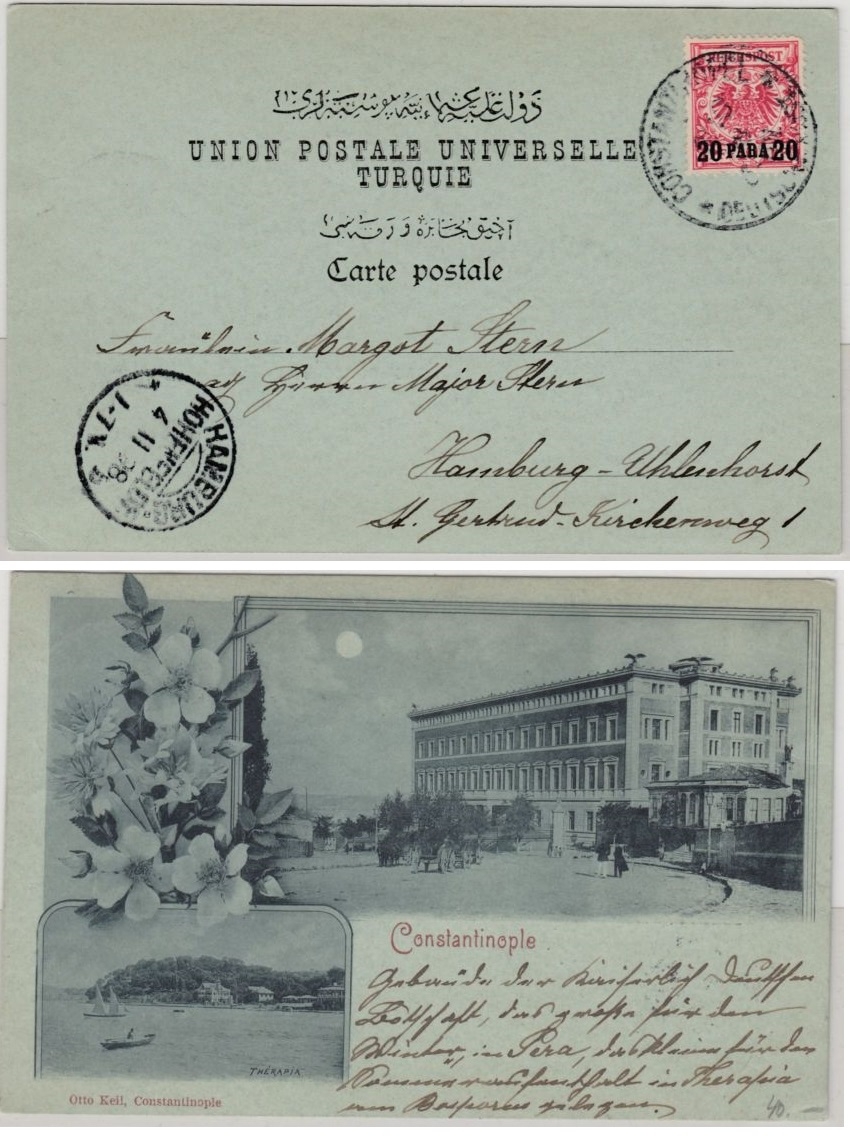 دولت عليه عثمانيه پوسته لرى
UNION POSTALE UNIVERSELLE
TURQUIE
آچيق مخابره ورقه سى
Carte postale
REICHSPOST
20 PARA 20
CONSTANTINOPEL
DEUTSCHE
Fräulein Margot Stern
Herrn Major Stern
Hamburg-Uhlenhorst
St. Gertrud-Kirchenweg 1
HAMBURG
HOHENFELDE
4 11 98
1-7 V
Constantinople
Gebäude der Kaiserlich Deutschen
Botschaft, das große für den
Winter, in Pera, das kleine für den
Sommeraufenthalt in Therapia
am Bosporus gelegen.
THÉRAPIA
Otto Keil, Constantinople
40.-